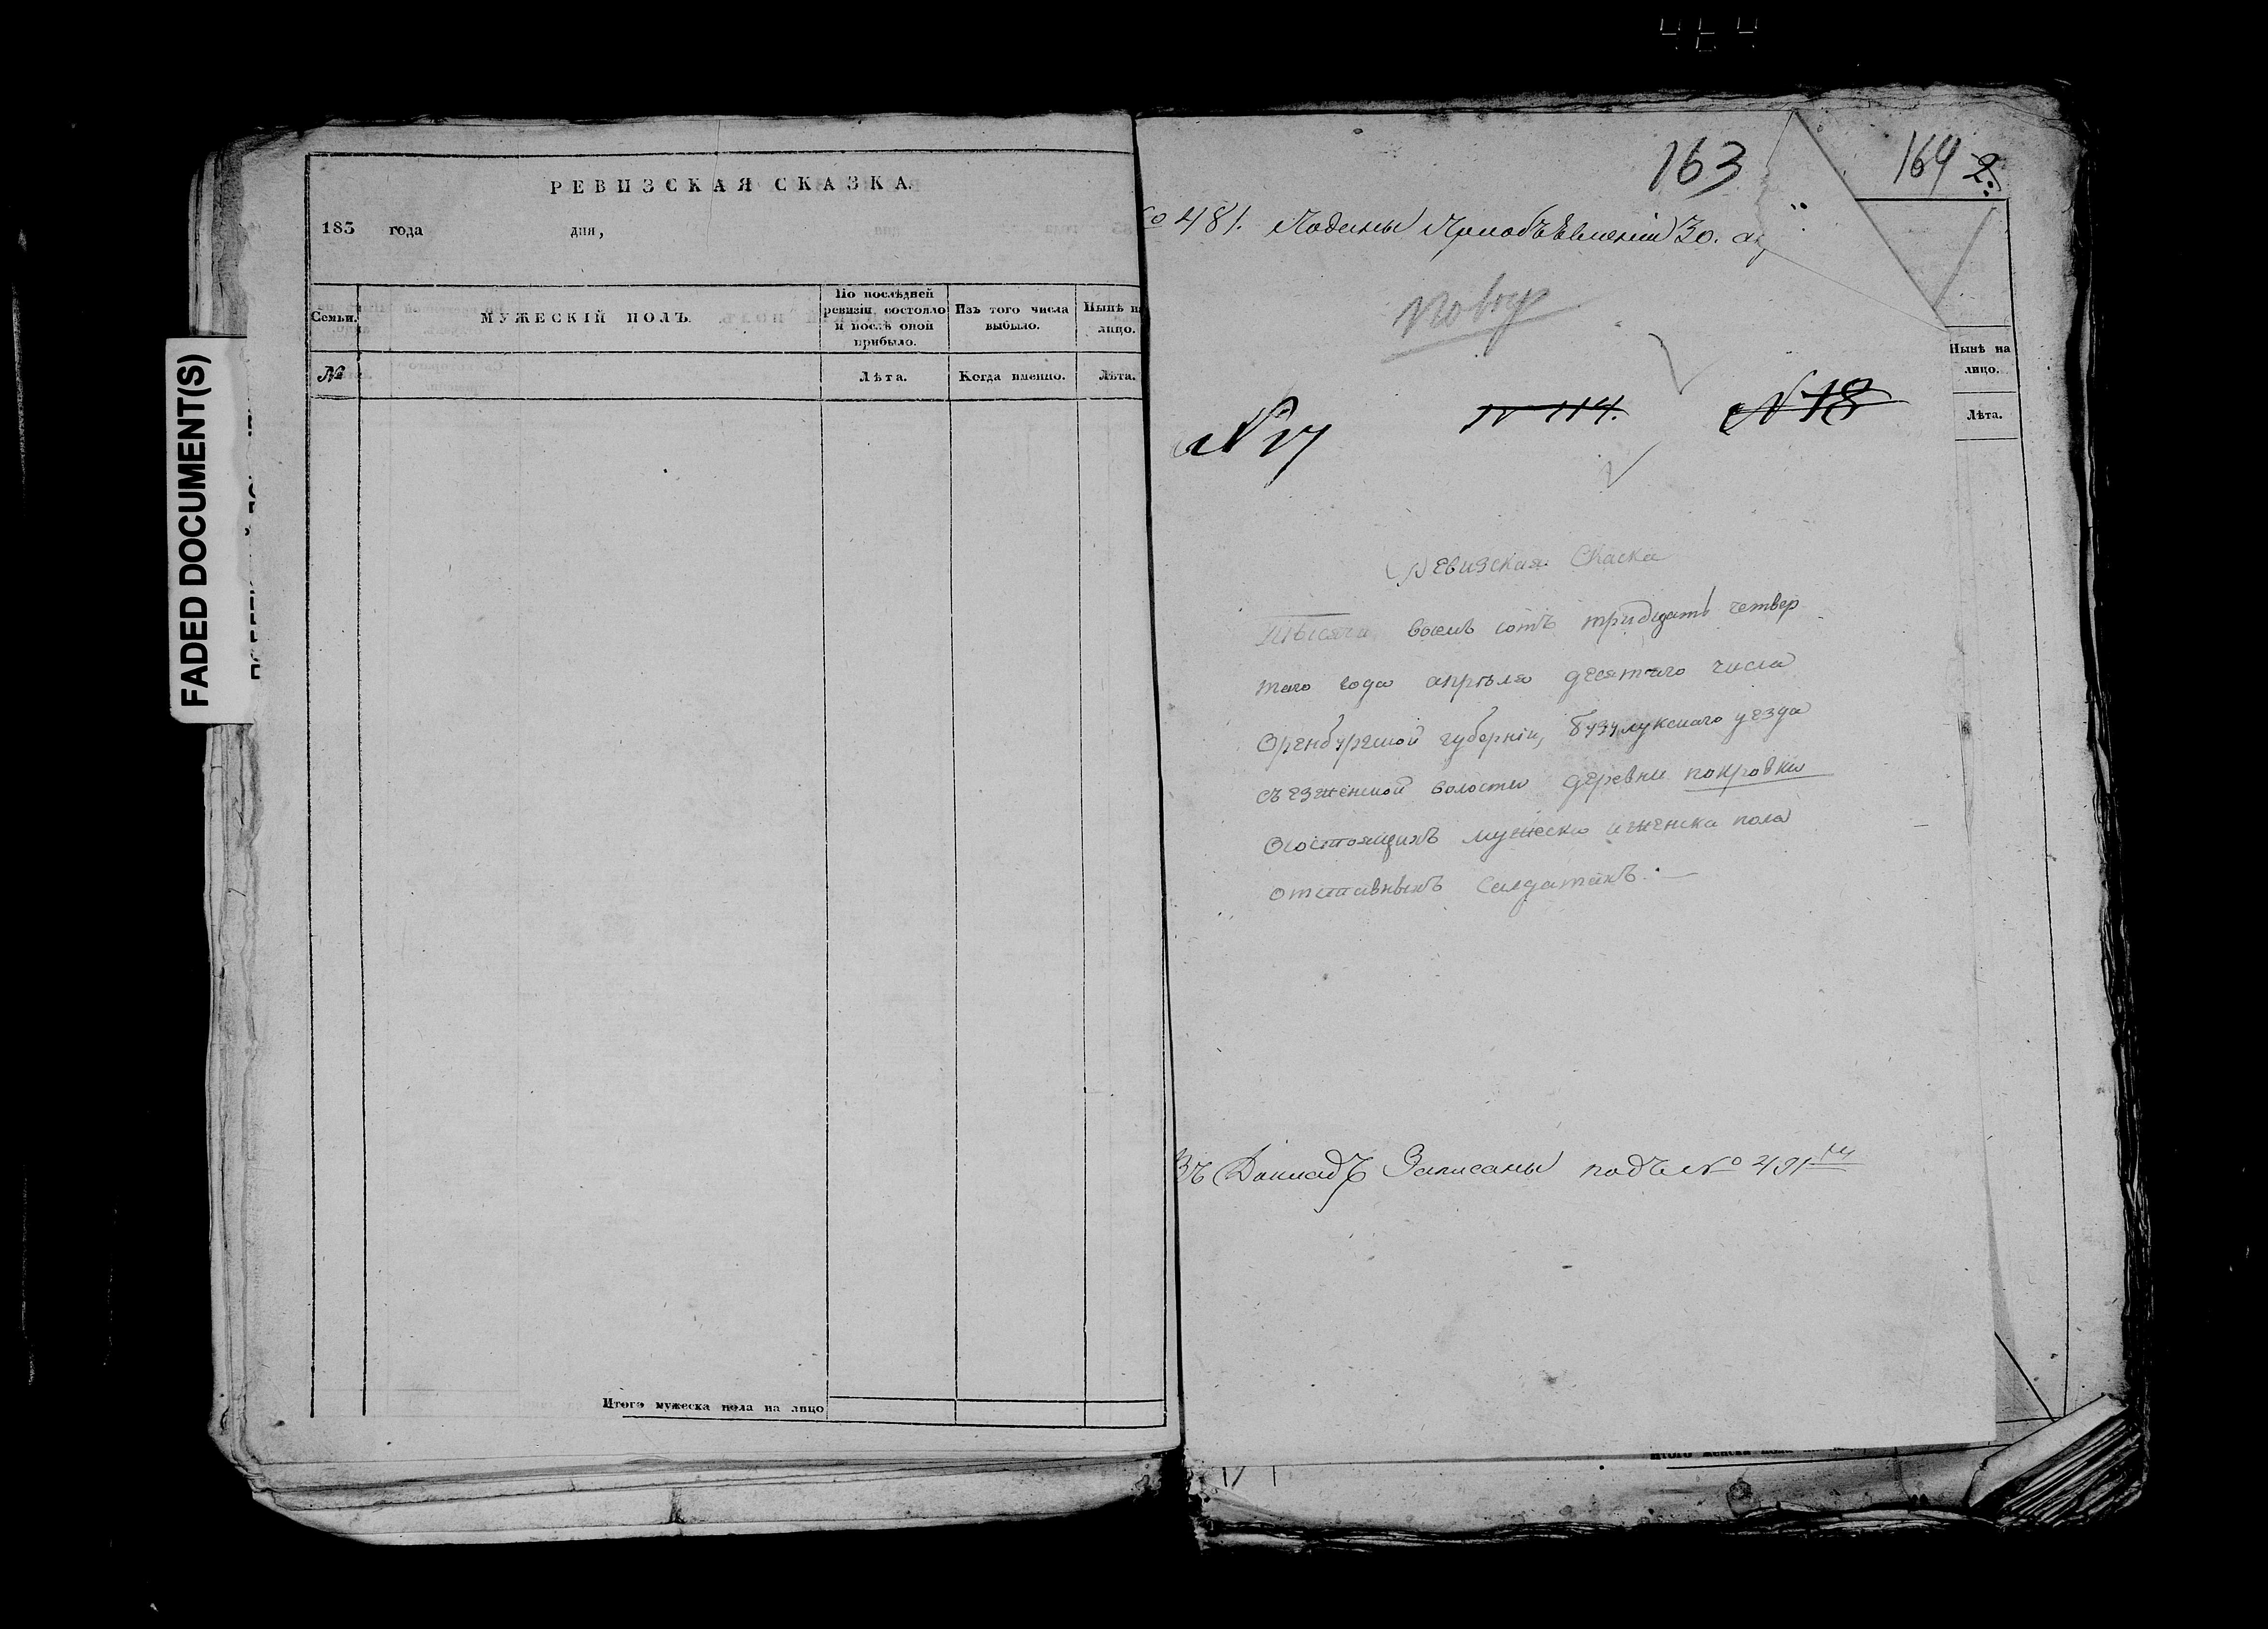 FADED DOCUMENT(S)
РЕВИЗСКАЯ СКАЗКА.
183 года дня,
Семьи.
МУЖЕСКІЙ ПОЛЪ.
По послѣдней
ревизіи состояло
и послѣ оной
прибыло.
Изъ того числа
выбыло.
Нынѣ н
лицо.
№
Лѣта.
Когда именно.
Лѣта.
Итого мужеска пола на лицо
163
164 2.
481. Поданы При объявленіи 30.
№ 17
№ 114.
№ 18
Нынѣ на
лицо.
Лѣта.
Ревизская Скаска
Тысяча восемь сотъ тридцать четвер
таго года апрѣля десятаго числа
Оренбургской губерніи, бузулукскаго уезда
съезженской волости деревни покровки
Осостоящихъ мужеска иженска пола
отставныхъ салдатахъ. —
Въ Докладъ Записаны подъ №